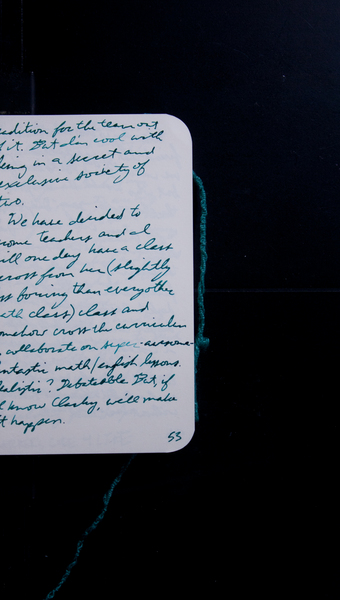 adition for the team out
of it. But I'm cool with
being in a secret and
exclusive society of
two.
We have decided to
become teachers and I
will one day have a class
across from her (slightly
less boring than everyother
math class) class and
somehow cross the curriculum
collaborate on super-awesome-
fantastic math/english lessons.
Realistic? Debatable. But, if
I know Clarky, will make
it happen.
53